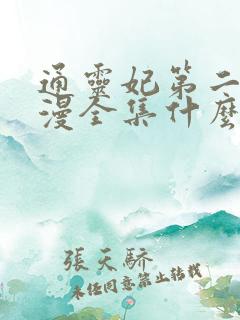 通靈妃第二
漫全集什麼
張天驕
未任同意禁止转载